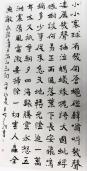 小小寰球有幾個蒼蠅碰壁嗡嗡叫幾聲
淒厲幾聲抽泣螞蟻緣槐誇大國蚍蜉
撼樹談何易正西風落葉下長安飛鳴
鏑多少事從來急天地轉光陰迫一萬
年太久只爭朝夕四海翻騰雲水怒五
洲震盪風雷激要掃除一切害人蟲全
無敵